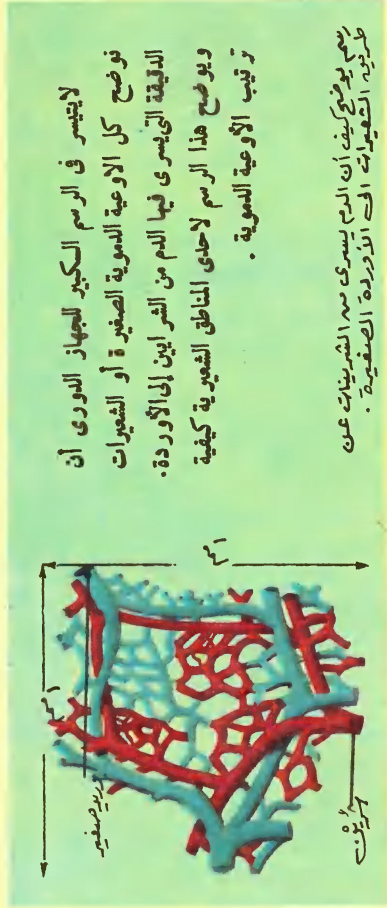 لايتيسر فى الرسم الكبير للجهاز الدورى أن
نوضح كل الاوعية الدموية الصغيرة أو الشعيرات
الدقيقة التى يسرى فيها الدم من الشرايين إلى الأوردة.
ويوضح هذا الرسم لاحدى المناطق الشعيرية كيفية
ترتيب الأوعية الدموية .
رسم يوضح كيف أن الدم يسرى من الشرينات عن
طريق الشعيرات الى الأوردة الصغيرة .
١مم
١مم
وريد صغير
شرين